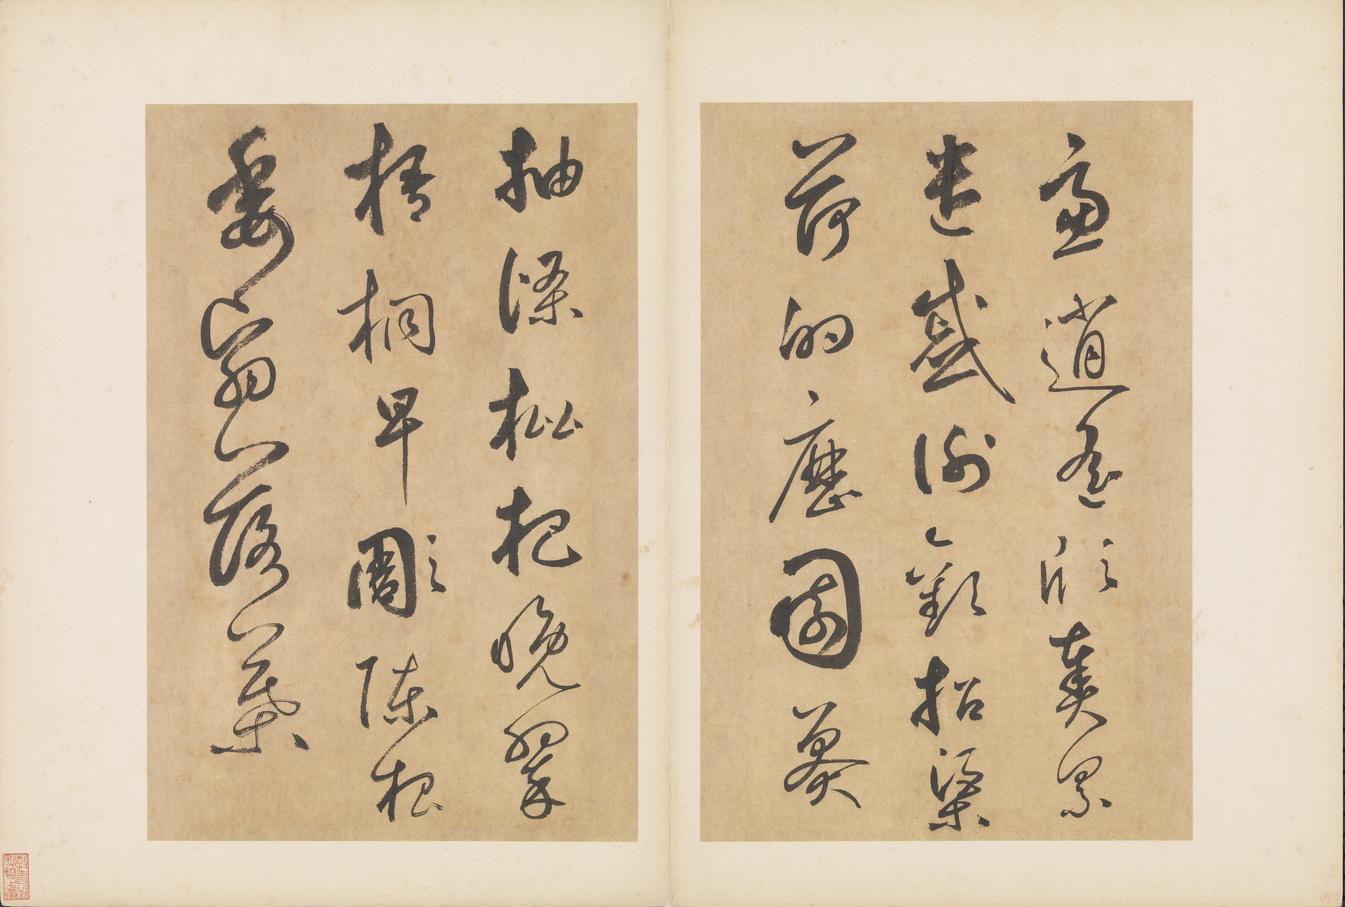 慮逍遙欣奏累
遣慼謝歡招渠
荷的歷園莽
抽條枇杷晚翠
梧桐早彫陳根
委翳落葉